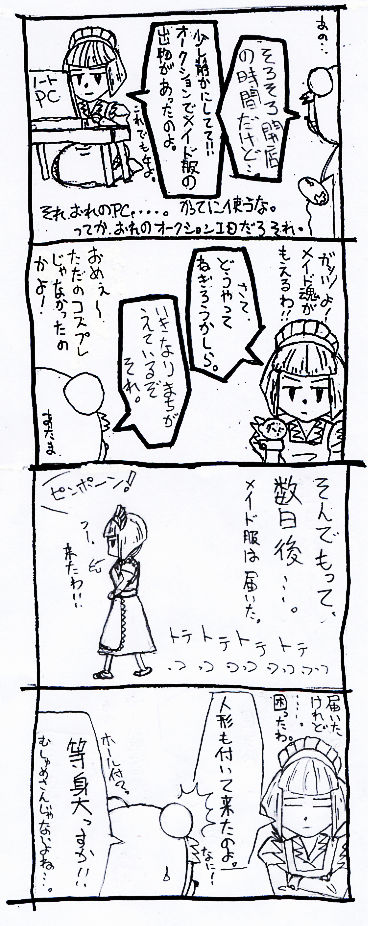 あの…
そろそろ開店
の時間だけど…
少し静かにしてて!!
オークションでメイド服の
出物があったのよ。
これでもよ。
ノート
PC
それおれのPC….。かってに使うな。
ってか、おれのオークションIDだろそれ。
ガッツよ!
メイド魂が
もえるわ!!
さて、
どうやって
ねぎろうかしら。
いきなりまちが
えているぞ
それ。
おめぇ〜、
ただのコスプレ
じゃなかったの
かよ!
あたま
そんでもって、
数日後…。
メイド服は届いた。
ピンポーン!
来たわ!!
トテトテトテトテ
届いた
けれど
….
困ったわ。
人形も付いて来たのよ。
なに!
ホール付?
等身大っすか!!
むしゅめさんじゃないよね…。